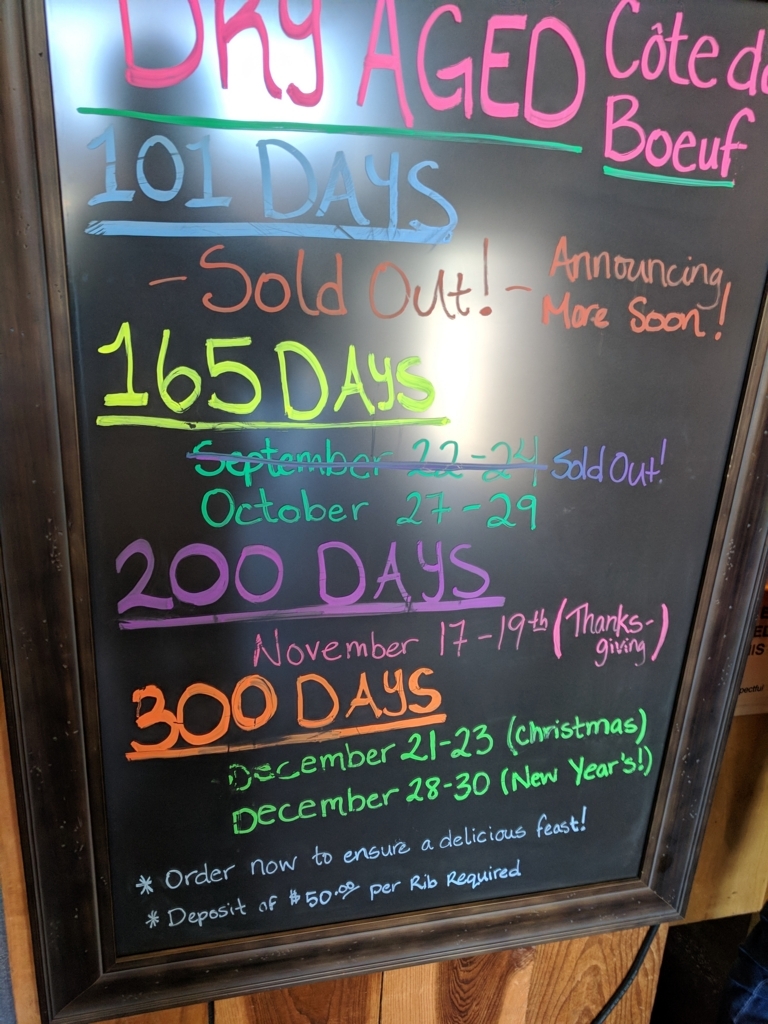 DRY AGED Côte de
Boeuf
101 DAYS
- Sold Out! - Announcing
More Soon!
165 DAYS
September 22-24 Sold Out!
October 27-29
200 DAYS
November 17-19th (Thanks-
giving)
300 DAYS
December 21-23 (Christmas)
December 28-30 (New Year's!)
* Order now to ensure a delicious feast!
* Deposit of $50.00 per Rib Required